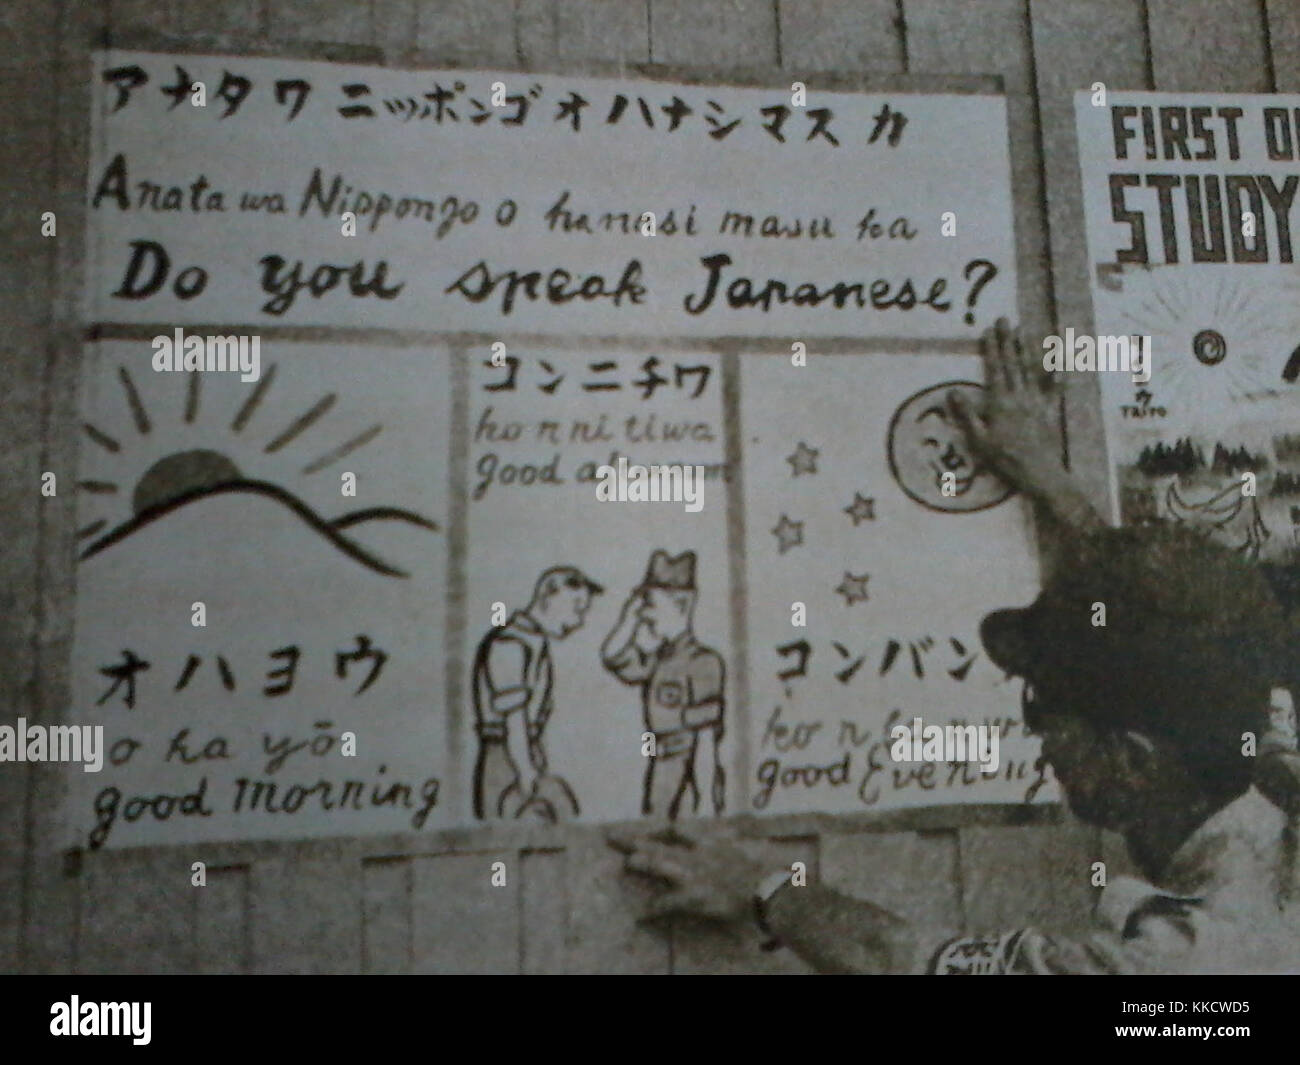 アナタワ ニッポンゴ オ ハナシマス カ
Anata wa Nippongo o hanasi masu ka
Do you speak Japanese?
オハヨウ
o ha yō
good morning
コンニチワ
ko n ni ti wa
good afternoon
コンバン
good Evening
FIRST
STUDY
TAIYO
alamy
Image ID: KKCWD5
www.alamy.com